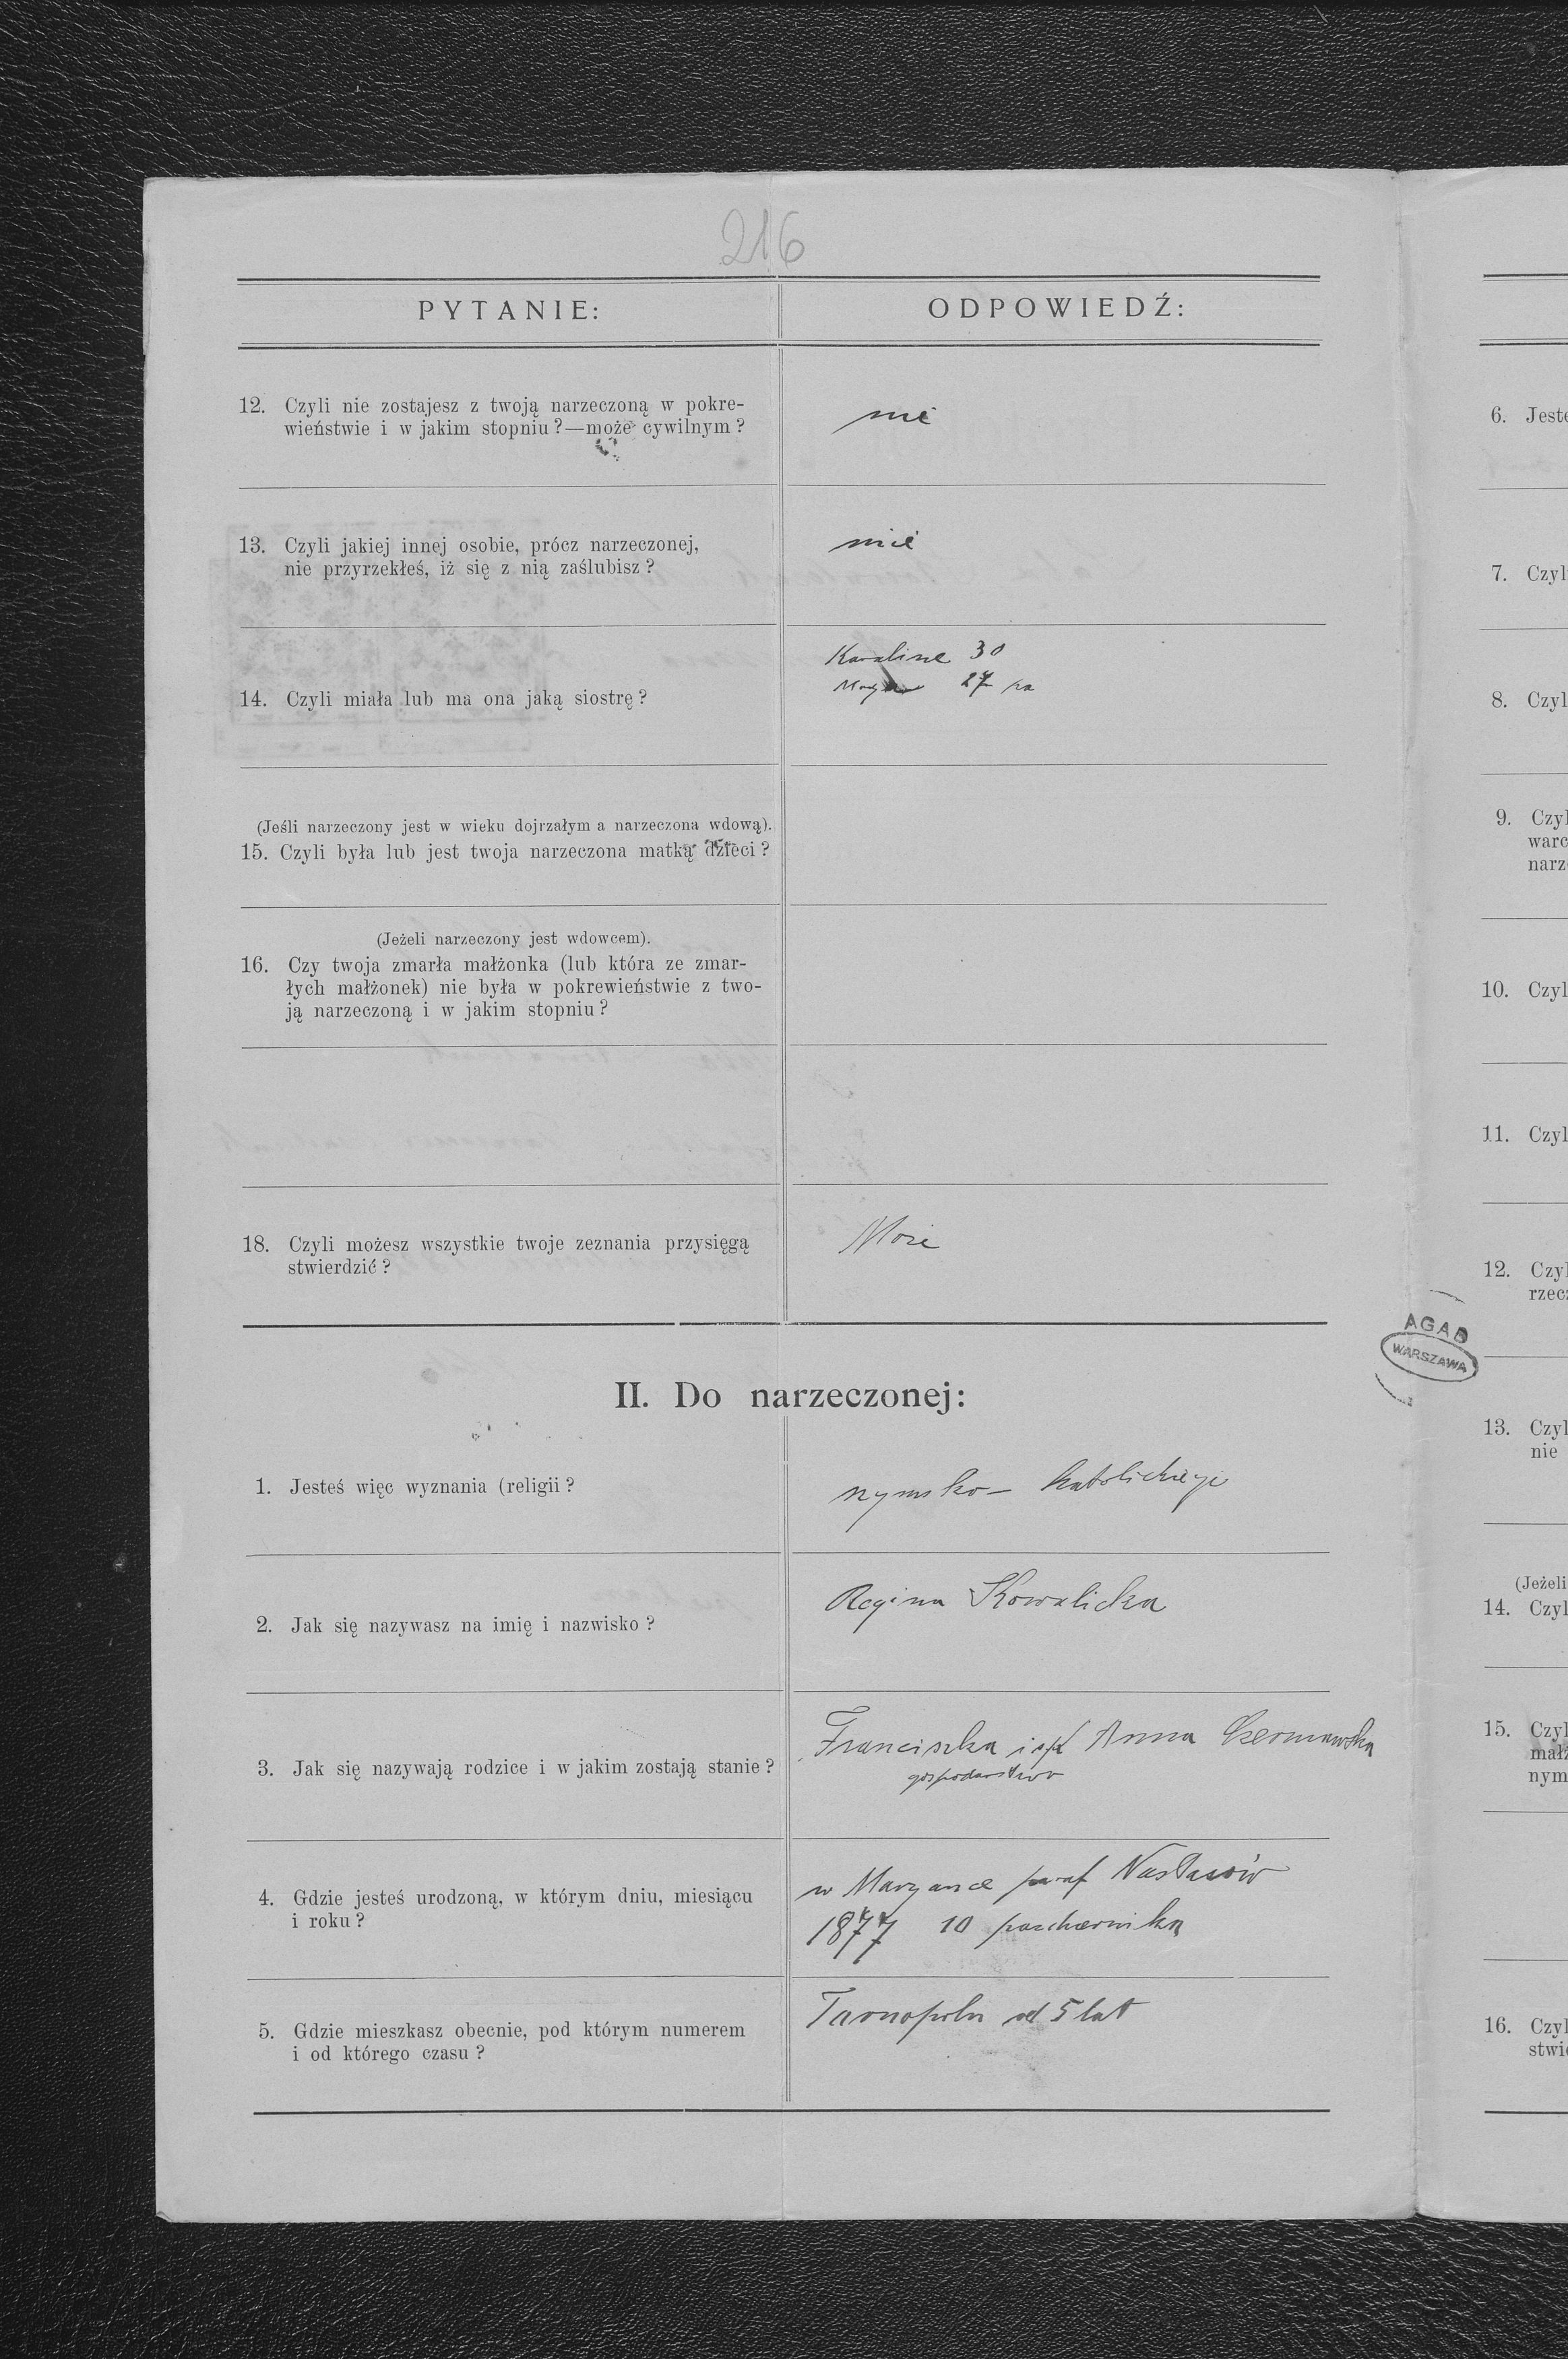 216
PYTANIE:
ODPOWIEDŹ:
12. Czyli nie zostajesz z twoją narzeczoną w pokre-
wieństwie i w jakim stopniu?—może cywilnym?
nie
13. Czyli jakiej innej osobie, prócz narzeczonej,
nie przyrzekłeś, iż się z nią zaślubisz?
nie
14. Czyli miała lub ma ona jaką siostrę?
Karoline 30
27
(Jeśli narzeczony jest w wieku dojrzałym a narzeczona wdową).
15. Czyli była lub jest twoja narzeczona matką dzieci?
(Jeżeli narzeczony jest wdowcem).
16. Czy twoja zmarła małżonka (lub która ze zmar-
łych małżonek) nie była w pokrewieństwie z two-
ją narzeczoną i w jakim stopniu?
18. Czyli możesz wszystkie twoje zeznania przysięgą
stwierdzić?
Może
II. Do narzeczonej:
1. Jesteś więc wyznania (religii?
rzymsko-
2. Jak się nazywasz na imię i nazwisko?
Regina Kowalicka
3. Jak się nazywają rodzice i w jakim zostają stanie?
Franciszka i Anna Czerniawska
gospodarstwo
4. Gdzie jesteś urodzoną, w którym dniu, miesiącu
i roku?
w Maryance paraf Nastasów
1877 10
5. Gdzie mieszkasz obecnie, pod którym numerem
i od którego czasu?
Tarnopolu od 5 lat
AGAD
WARSZAWA
6. Jeste
7. Czyl
8. Czyl
9. Czyl
warc
narz
10. Czyl
11. Czyl
12. Czyl
rzecz
13. Czyl
nie
(Jeżeli
14. Czyl
15. Czyl
małż
nym
16. Czyl
stwie